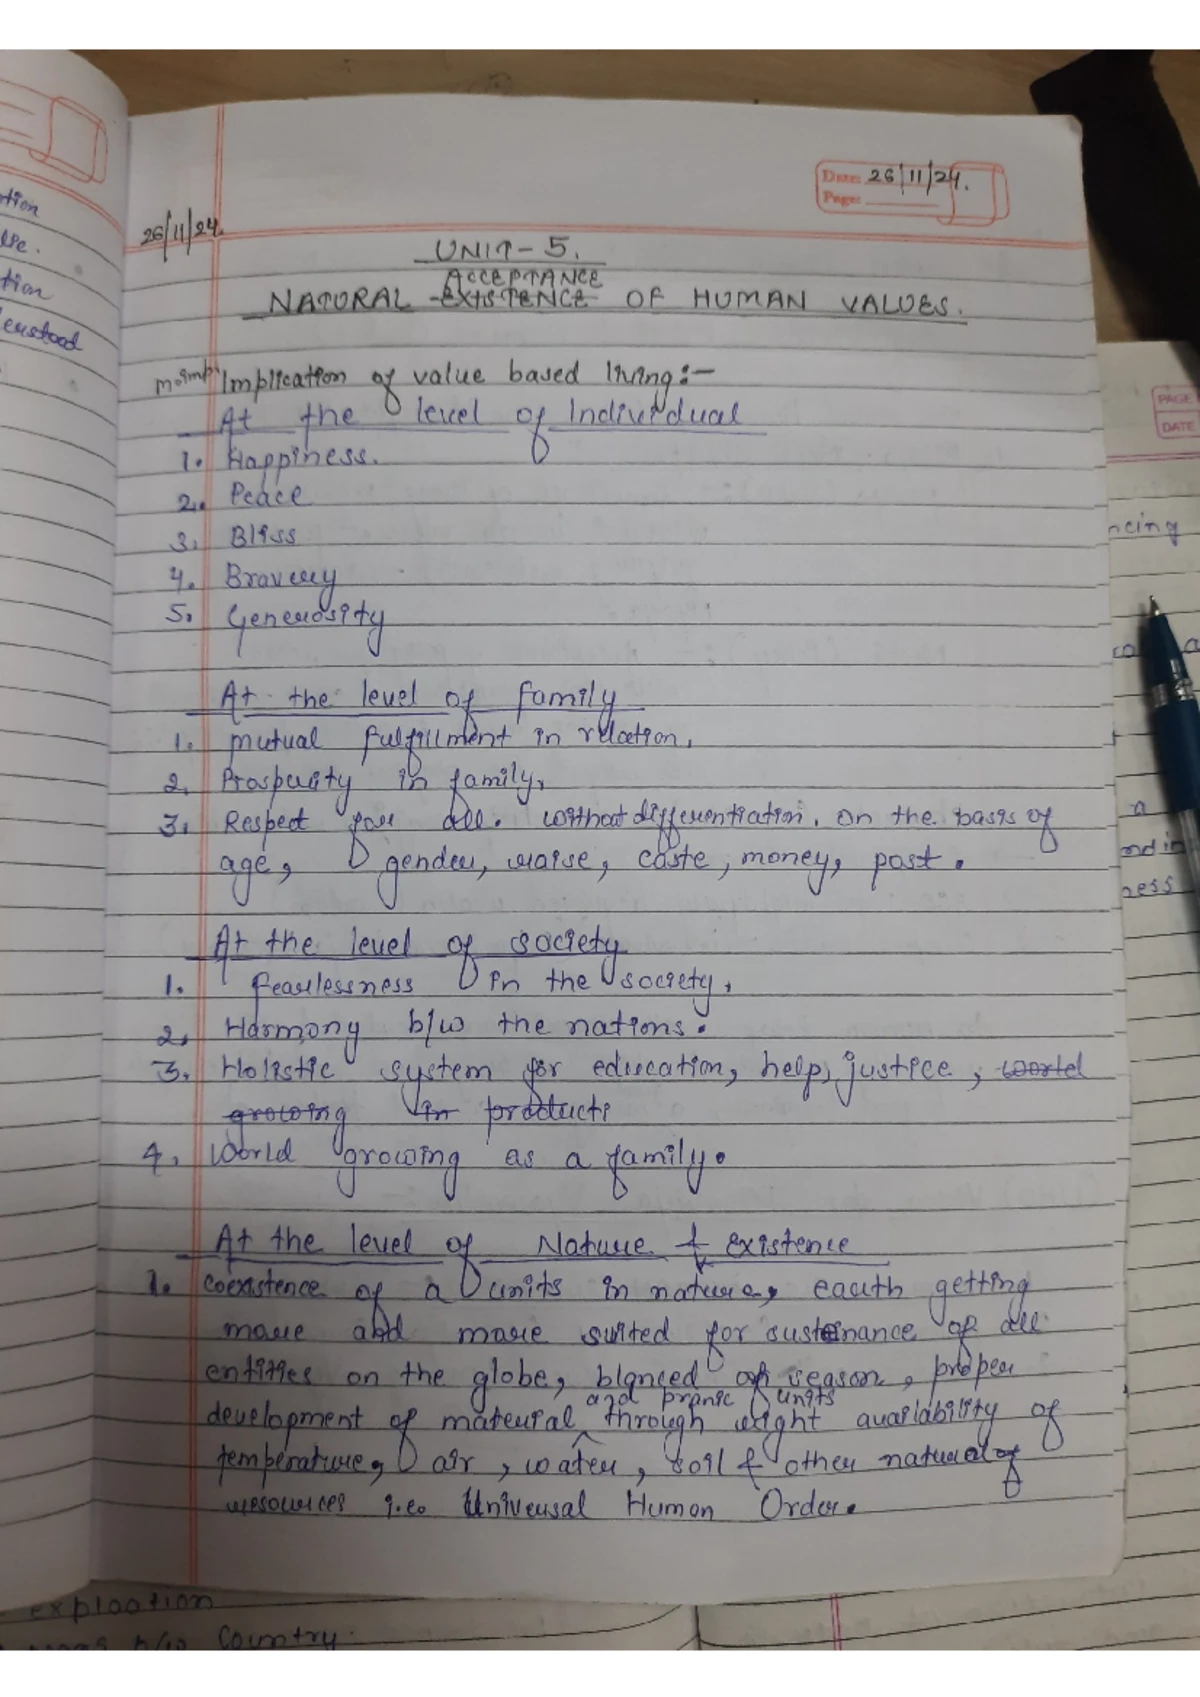 Date: 26/11/24.
Page:
26/11/24.
UNIT-5.
ACCEPTANCE
NATURAL EXISTENCE OF HUMAN VALUES.
m.imp. Implication of value based living:-
At the level of Individual
1. Happiness.
2. Peace
3. Bliss
4. Bravery
5. Generosity
At the level of family
1. mutual fulfillment in relation.
2. Prosperity in family.
3. Respect for all. without differentiation. on the basis of
age, gender, raise, caste, money, post.
At the level of society
1. fearlessness in the society.
2. Harmony b/w the nations.
3. Holistic system for education, help, justice, world
growing in producti
4. World growing as a family.
At the level of Nature & existence
1. coexistence of a units in nature, earth getting
more and more suited for sustenance of all
entities on the globe, blanced of season, proper
and pranic units
development of material through right availability of
temperature, air, water, soil & other natural of
resources i.e. Universal Human Order.
tion
lse.
tion
erstood
PAGE
DATE
ncing
co a
a
nd in
ness
explaation
b/w Country.